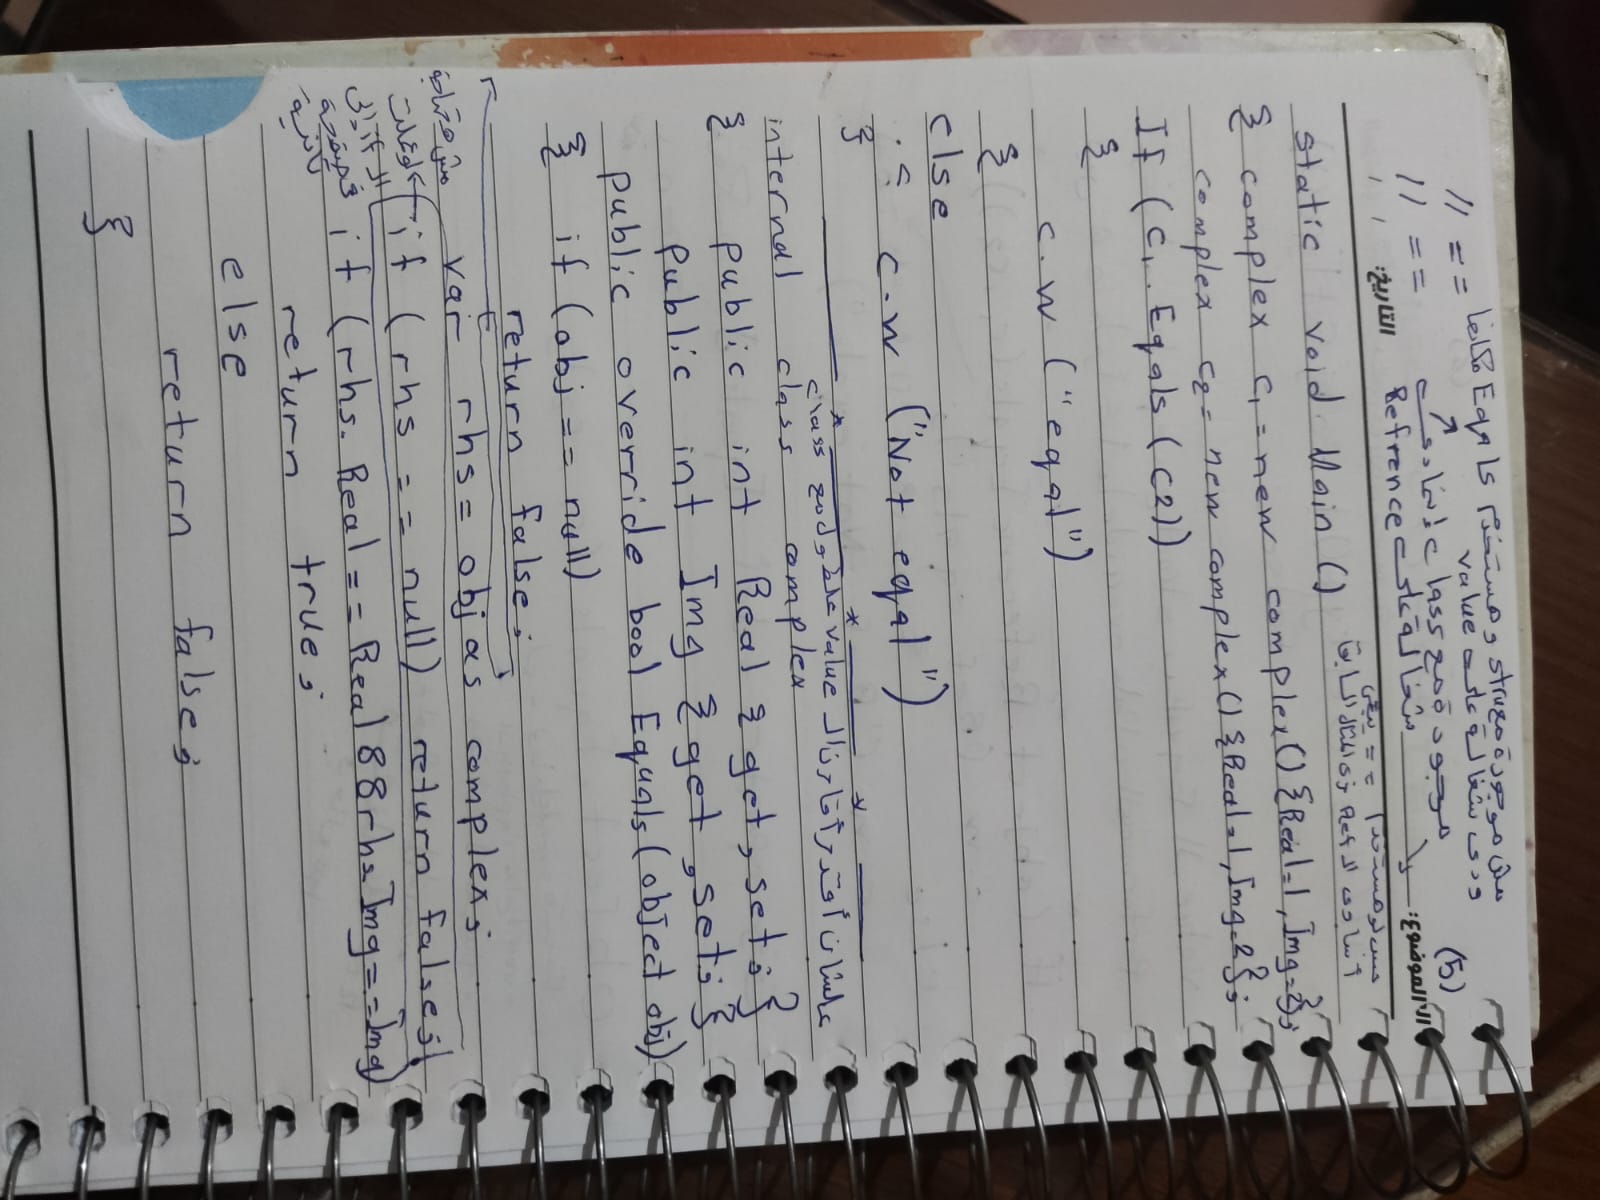 // == مش موجودة مع struc وهستخدم Eqals مكانها
ودى شغالة على value
// == موجودة مع class إنما دى
شغالة على Refrence
(5)
الموضوع:
التاريخ: / /
بس لو هستخدم == يبقى
أساوى الـ Ref زى المثال السابق
static void Main ()
{ complex c1 = new complex() {Real=1, Img=2};
complex c2 = new complex() {Real=1, Img=2};
If (c1.Eqals (c2))
{
c.w ("eqal")
}
else
{ c.w ("Not eqal")
}
علشان أقدر أقارن الـ value علطول مع class
internal class complex
{ public int Real { get, set; }
public int Img { get, set; }
public override bool Equals (object obj)
{ if (obj == null)
return false;
var rhs = obj as complex;
if (rhs == null) return false;
if (rhs.Real == Real && rhs.Img == Img)
return true;
else
return false;
}
مش محتاجة
لو عملت
الـ if إلى
فصفحة
تانية